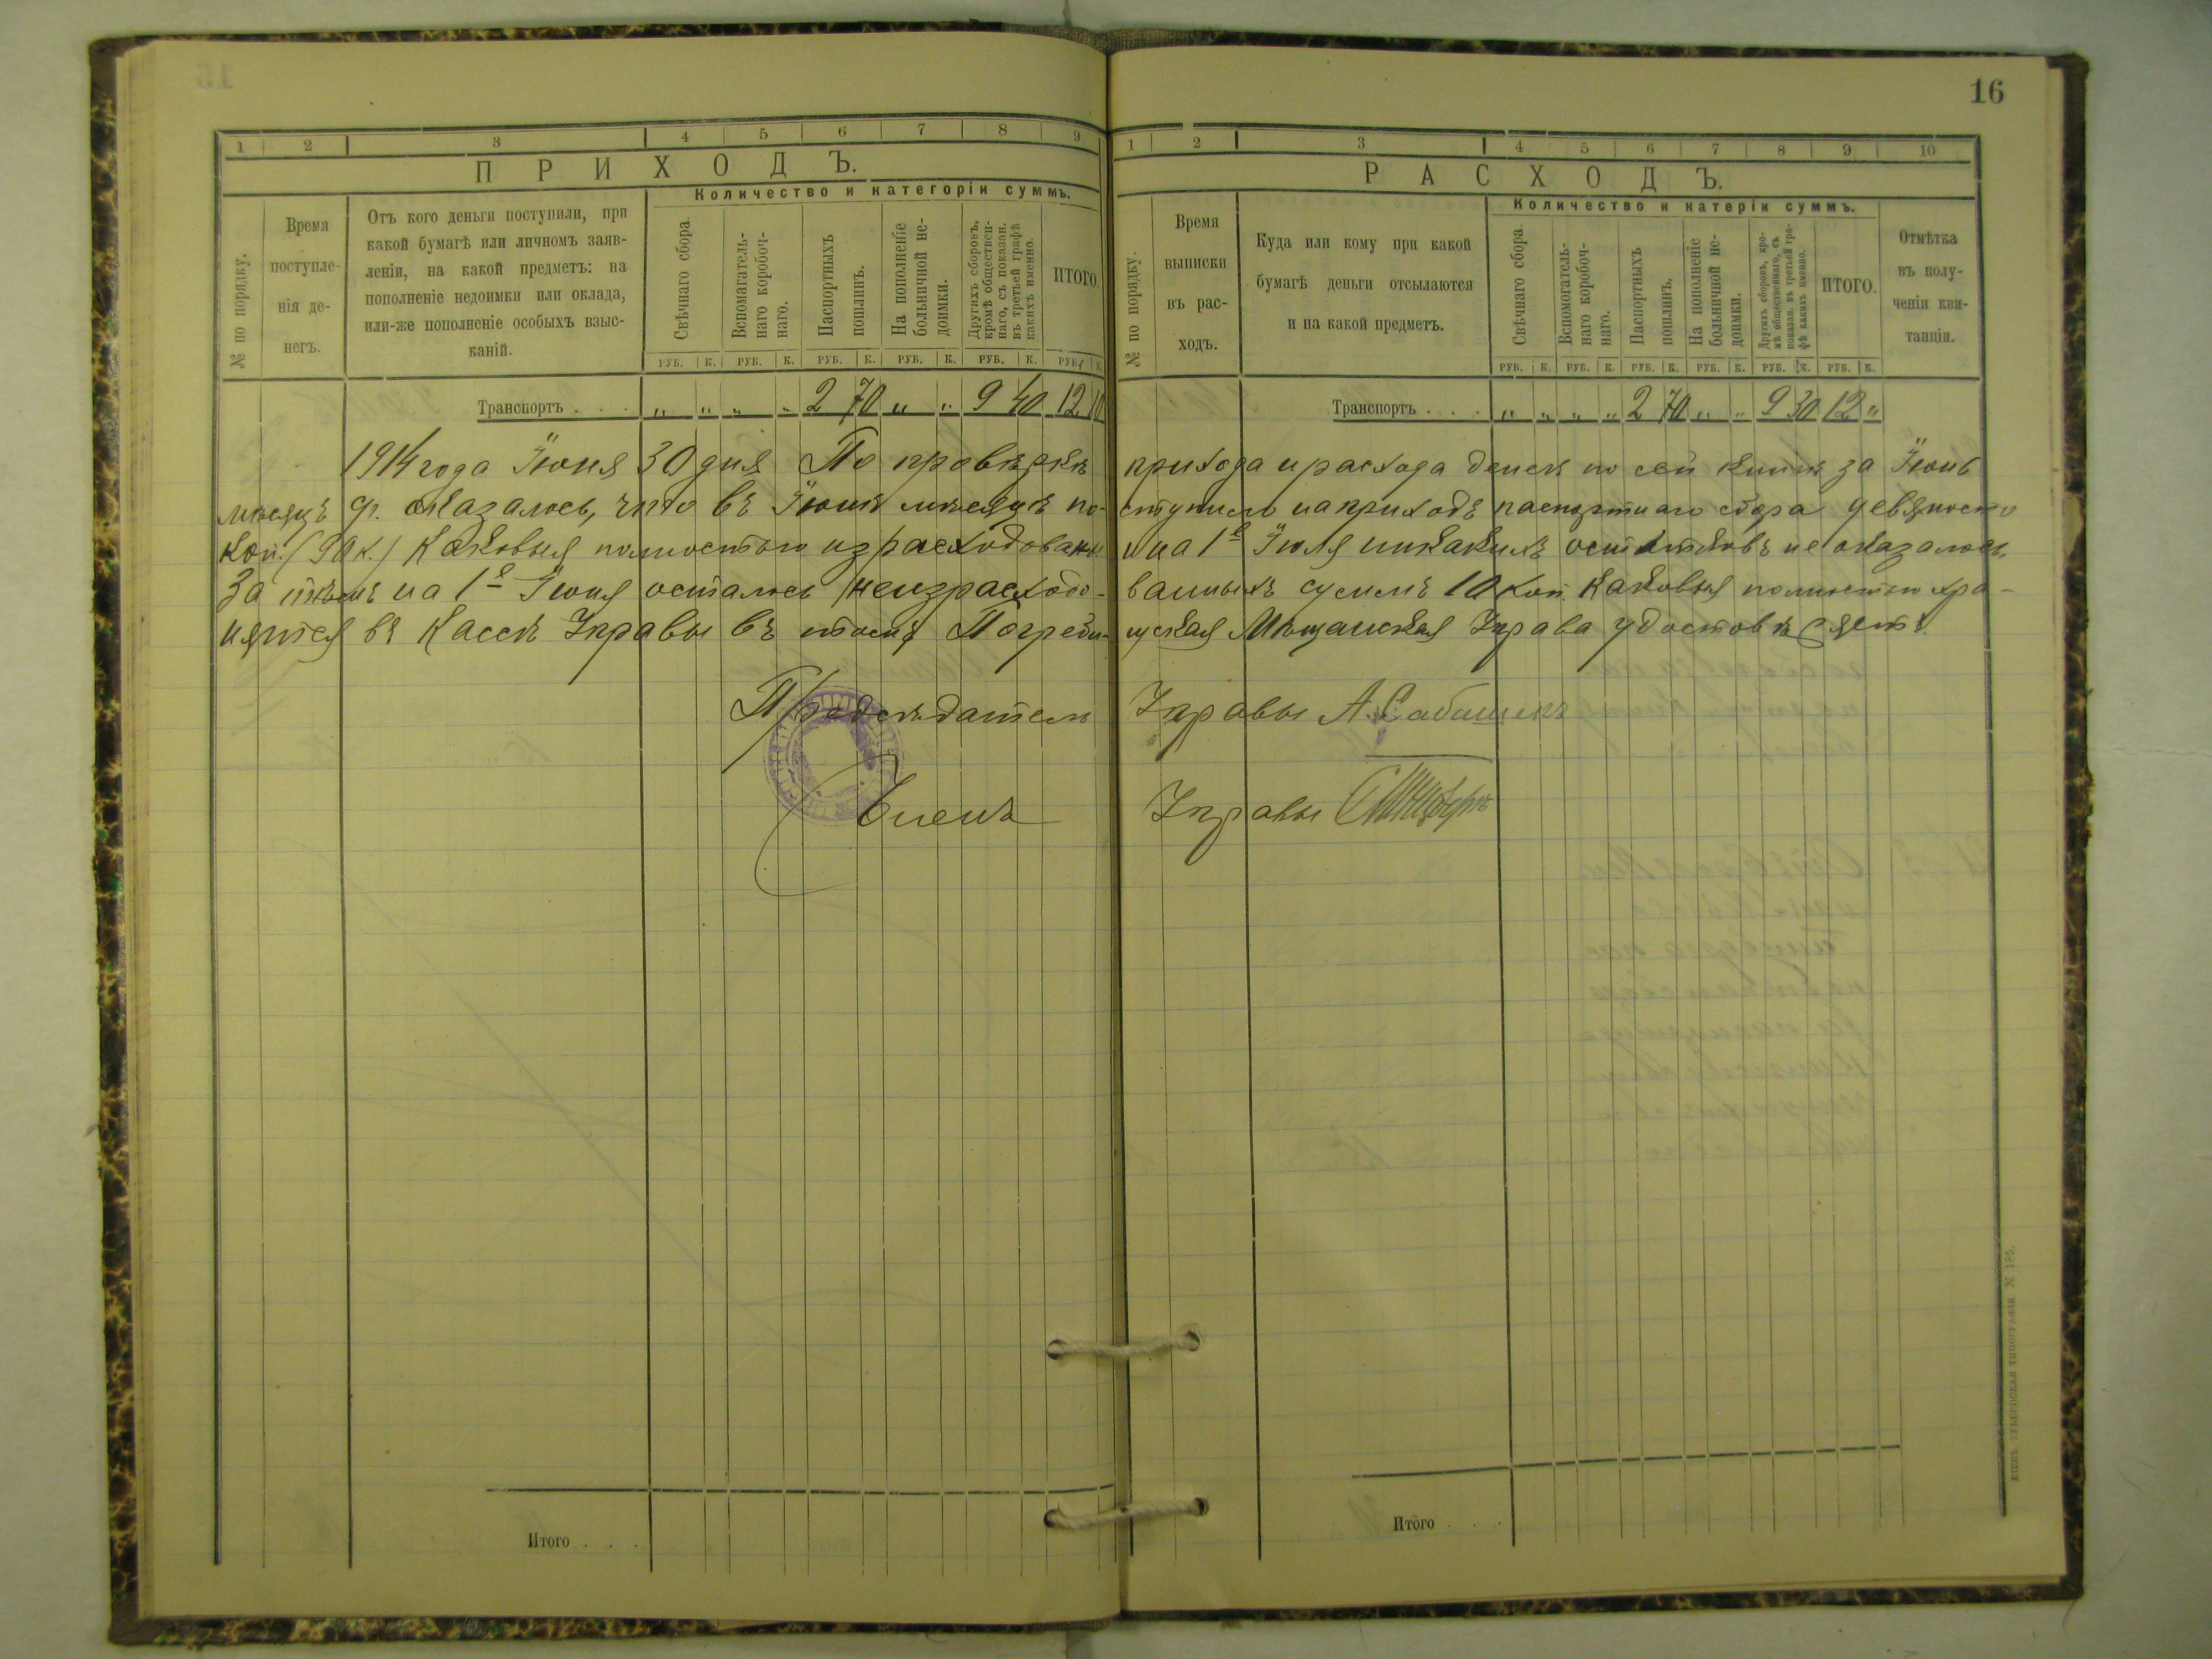 16
1 2 3 4 5 6 7 8 9
ПРИХОДЪ.
Количество и категоріи суммъ.
№ по порядку.
Время
поступле-
нія де-
негъ.
Отъ кого деньги поступили, при
какой бумагѣ или личномъ заяв-
леніи, на какой предметъ: на
пополненіе недоимки или оклада,
или-же пополненіе особыхъ взыс-
каній.
Свѣчнаго сбора.
Вспомагатель-
наго коробоч-
наго.
Паспортныхъ
пошлинъ.
На пополненіе
больничной не-
доимки.
Другихъ сборовъ,
кромѣ обществен-
наго, съ показан.
въ третьей графѣ
какихъ именно.
ИТОГО.
РУБ. К. РУБ. К. РУБ. К. РУБ. К. РУБ. К. РУБ. К.
Транспортъ . . . „ „ „ „ 2 70 „ „ 9 40 12 10
1 2 3 4 5 6 7 8 9 10
РАСХОДЪ.
Количество и катеріи суммъ.
№ по порядку.
Время
выписки
въ рас-
ходъ.
Куда или кому при какой
бумагѣ деньги отсылаются
и на какой предметъ.
Свѣчнаго сбора.
Вспомогатель-
наго коробоч-
наго.
Паспортныхъ
пошлинъ.
На пополненіе
больничной не-
доимки.
Другихъ сборовъ, кро-
мѣ общественнаго, съ
показан. въ третьей гра-
фѣ какихъ именно.
ИТОГО.
Отмѣтка
въ полу-
ченіи кви-
танціи.
РУБ. К. РУБ. К. РУБ. К. РУБ. К. РУБ. К. РУБ. К.
Транспортъ . . . „ „ „ „ 2 70 „ „ 9 30 12 „
1914 года Іюня 30 дня По провѣркѣ прихода и расхода денегъ по сей книгѣ за Іюнь
мѣсяцъ оказалось, что въ Іюнѣ мѣсяцѣ по- ступило на приходъ паспортнаго сбора девяносто
коп. (90 к.) каковыя полностью израсходованы и на 1е Іюля никакихъ остатковъ не оказалось,
За тѣмъ на 1е Іюня осталось неизрасходо- ванныхъ суммъ 10 коп. каковыя полностью хра-
нятся въ Кассѣ Управы въ томъ Погреби- щская Мѣщанская Управа удостовѣряетъ.
Предсѣдатель Управы А. Сабашекъ
Членъ Управы
Итого . . .
Итого . . .